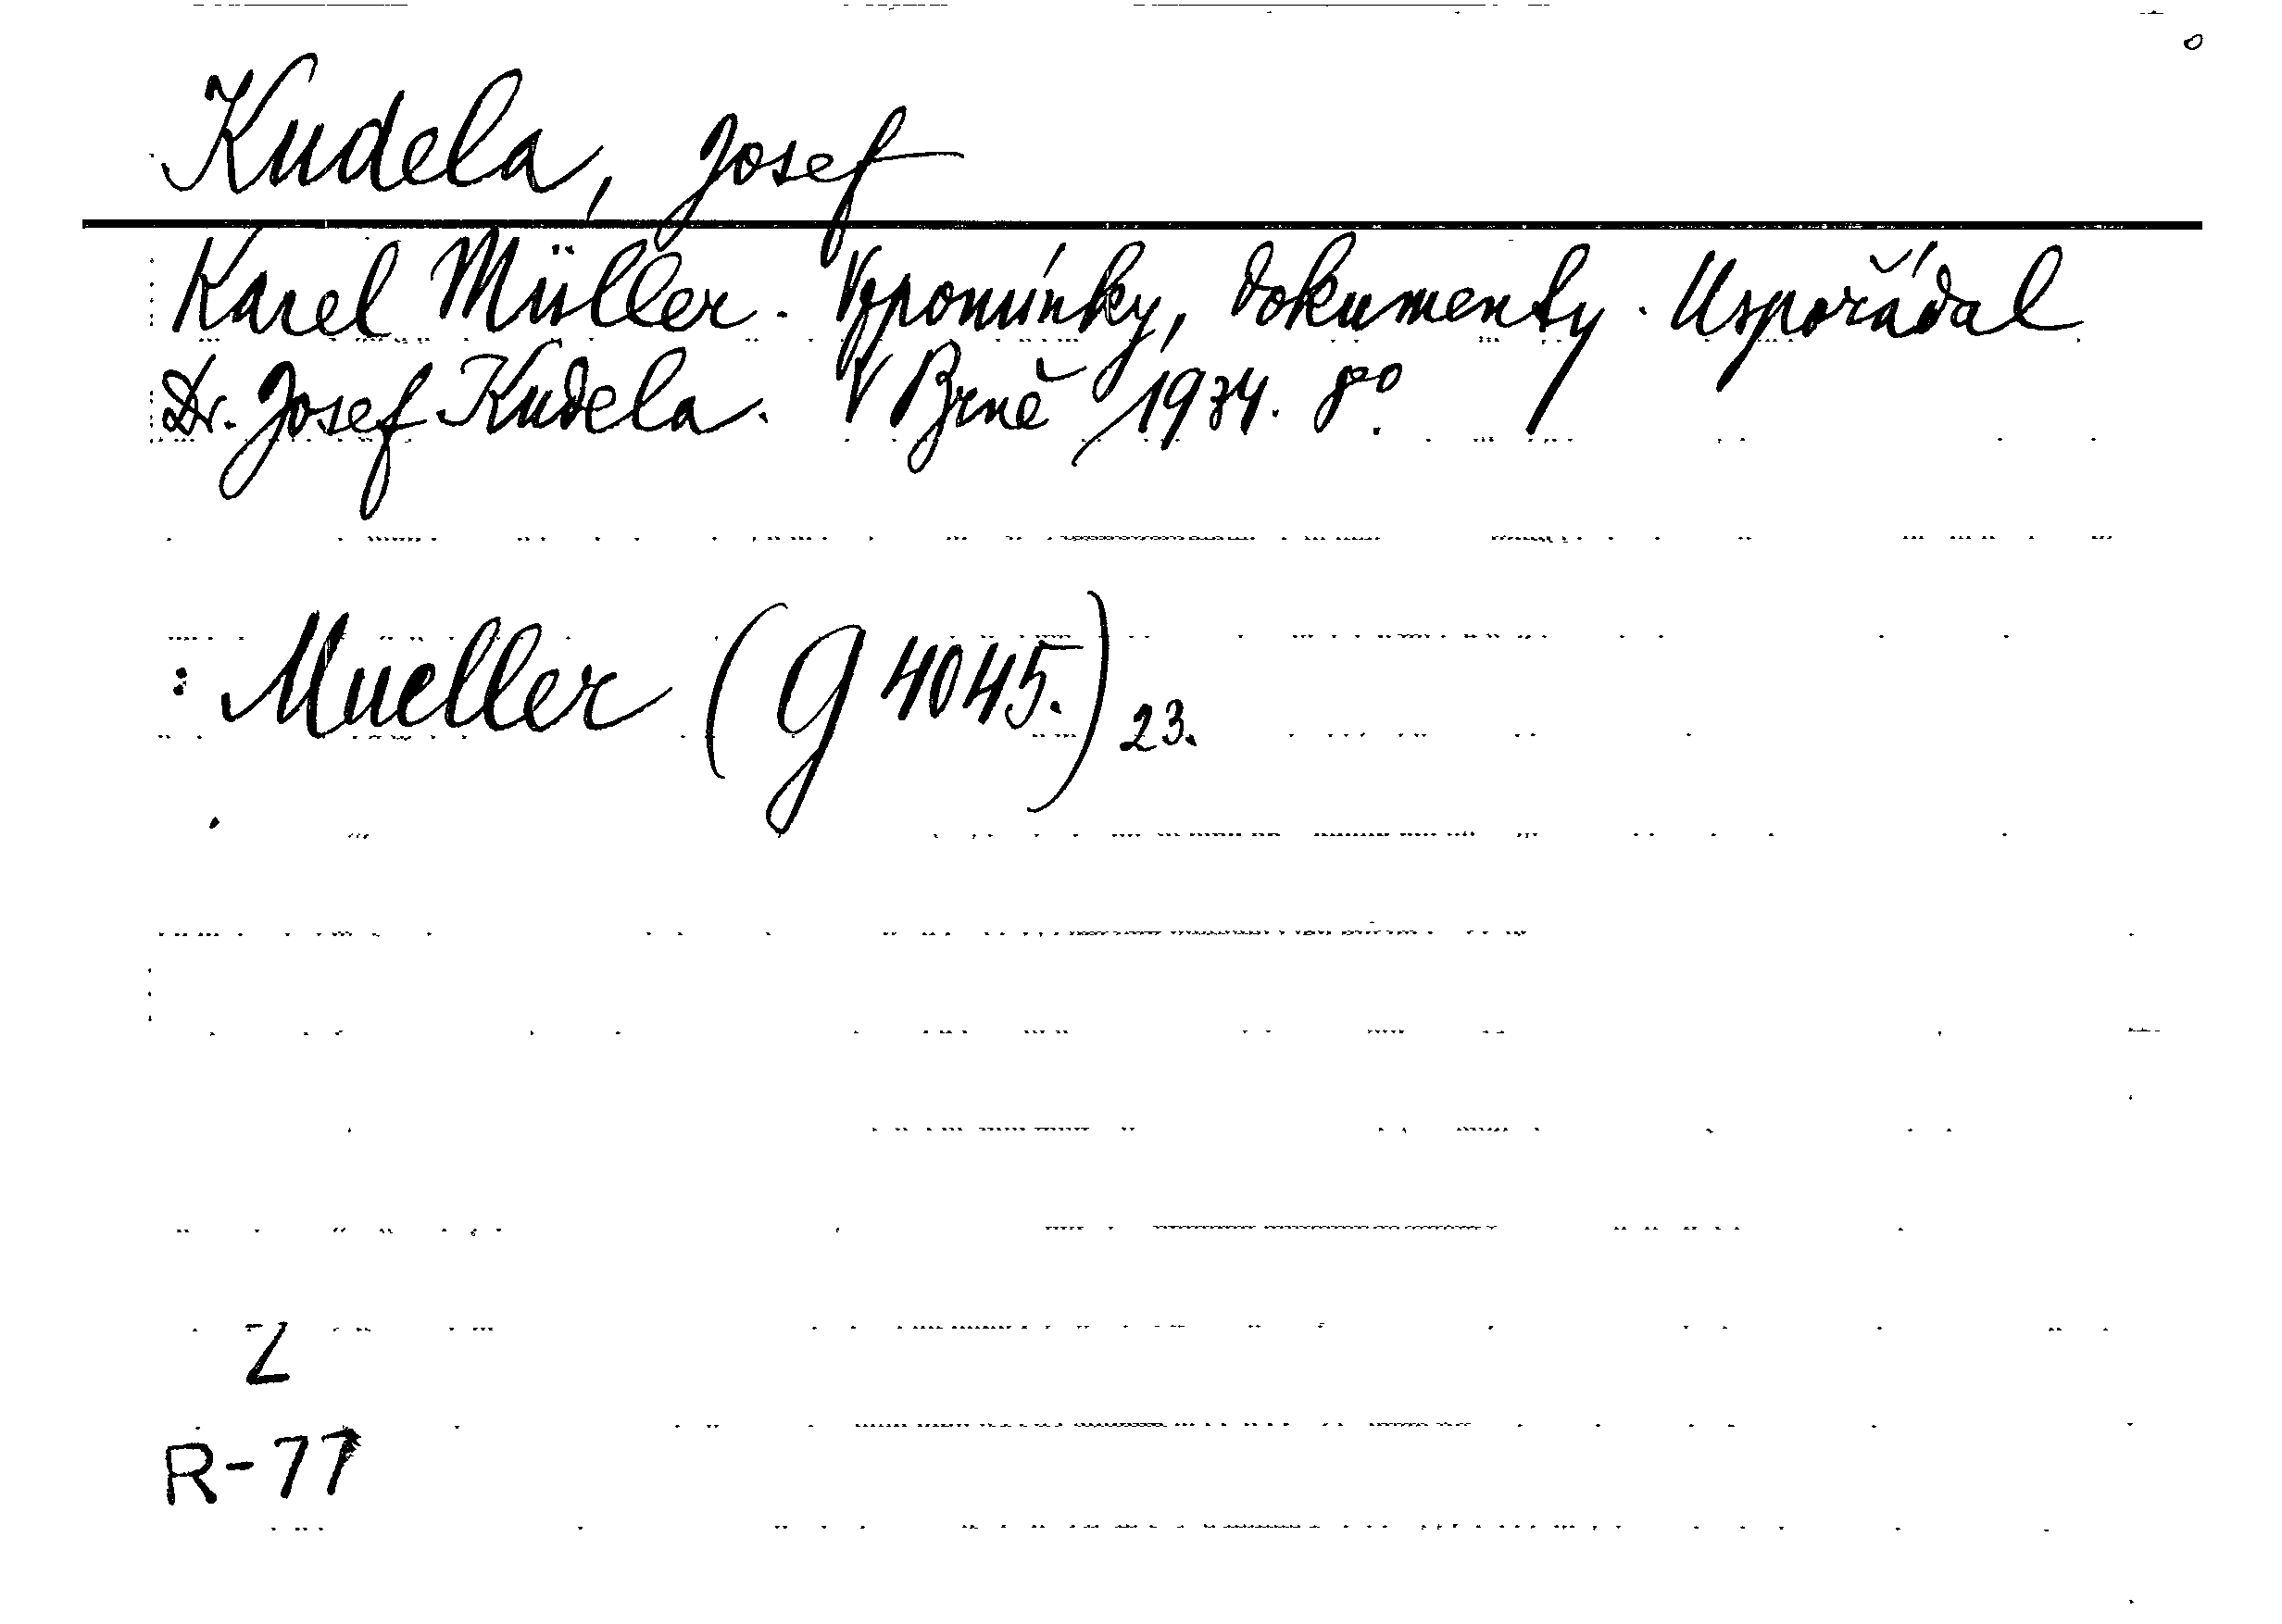 Kudela, Josef
Karel Müller. Vzpomínky, dokumenty. Uspořádal
Dr. Josef Kudela. V Brně 1934. 8º.
: Mueller (G 4045.) 23.
Z
R-77